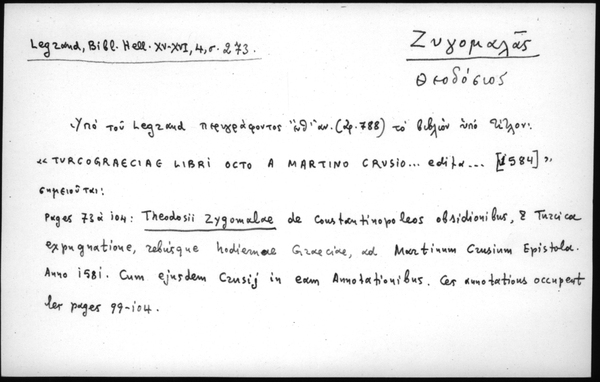 Legrand, Bibl. Hell. XV-XVI, 4, σ. 273.
Ζυγομαλᾶς
Θεοδόσιος
Ὑπό τοῦ Legrand περιγράφοντος (ἀρ. 788) τό βιβλίον ὑπό τίτλον:
« TVRCOGRAECIAE LIBRI OCTO A MARTINO CRUSIO... edita... [1584] »,
σημειοῦται:
Pages 73 à 104: Theodosii Zygomalae de Constantinopoleos obsidionibus, & Turcica
expugnatione, rebusque hodiernae Graeciae, ad Martinum Crusium Epistola.
Anno 1581. Cum ejusdem Crusij in eam Annotationibus. Ces annotations occupent
les pages 99-104.